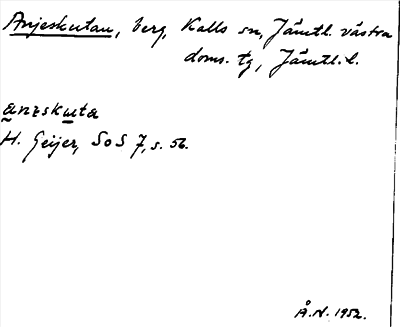 Anjeskutan, berg, Kalls sn, Jämtl. västra
doms. tg, Jämtl. l.
anɛskuta
H. Geijer, SoS 7, s. 56.
Å.N. 1952.